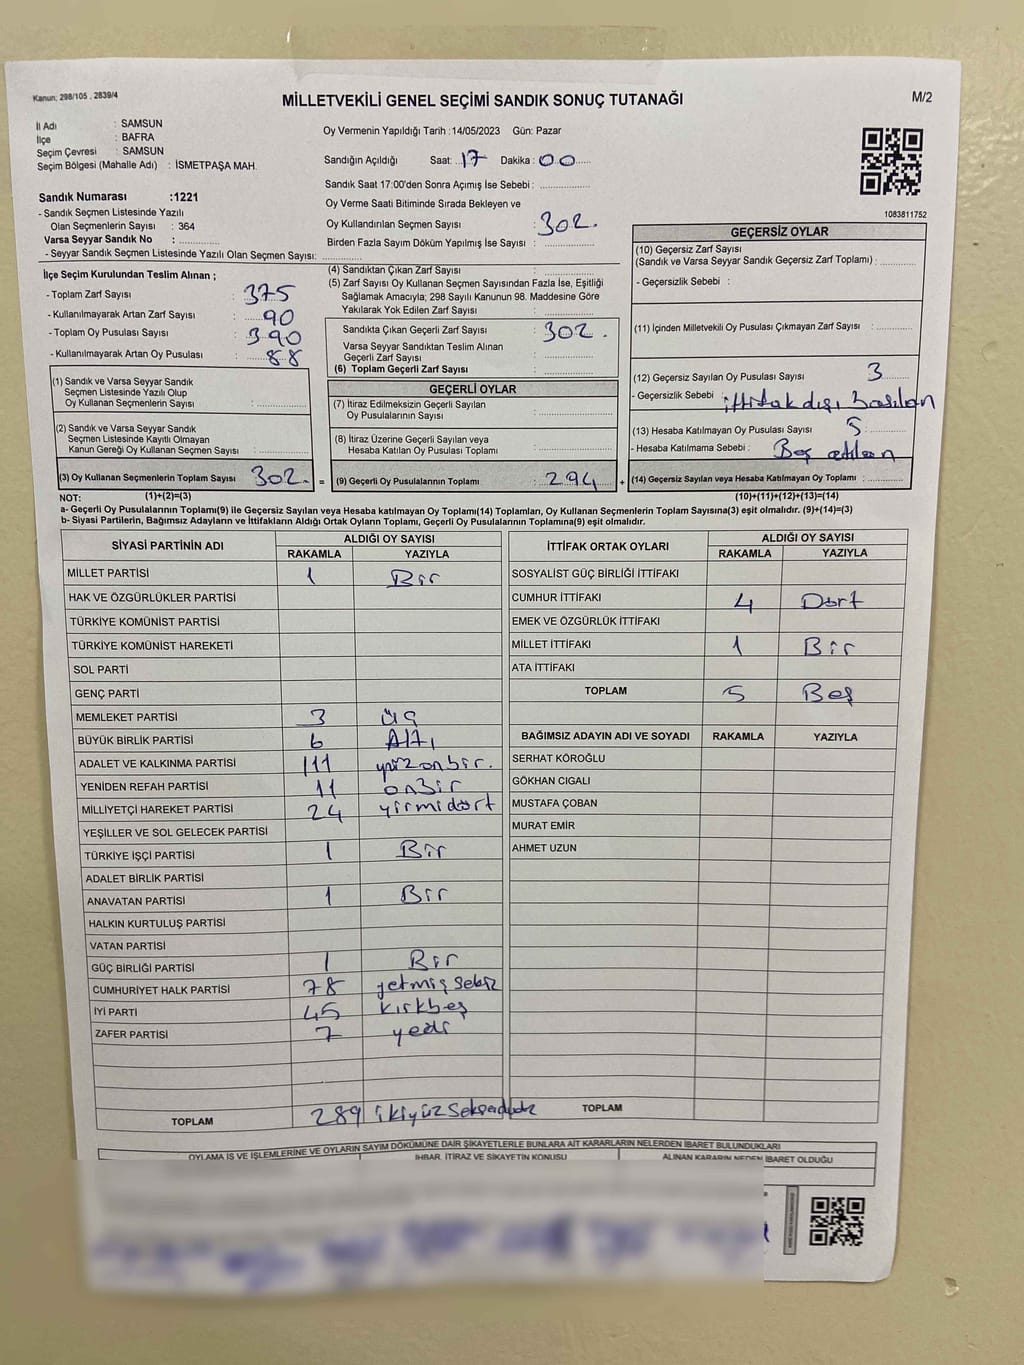 Kanun: 298/105 , 2839/4
MİLLETVEKİLİ GENEL SEÇİMİ SANDIK SONUÇ TUTANAĞI
M/2
İl Adı : SAMSUN
İlçe : BAFRA
Seçim Çevresi : SAMSUN
Seçim Bölgesi (Mahalle Adı) : İSMETPAŞA MAH.
Sandık Numarası :1221
- Sandık Seçmen Listesinde Yazılı
Olan Seçmenlerin Sayısı : 364
Varsa Seyyar Sandık No : ..............
- Seyyar Sandık Seçmen Listesinde Yazılı Olan Seçmen Sayısı: ..............
İlçe Seçim Kurulundan Teslim Alınan ;
- Toplam Zarf Sayısı : 375
- Kullanılmayarak Artan Zarf Sayısı : 90
- Toplam Oy Pusulası Sayısı : 390
- Kullanılmayarak Artan Oy Pusulası : 88
(1) Sandık ve Varsa Seyyar Sandık
Seçmen Listesinde Yazılı Olup
Oy Kullanan Seçmenlerin Sayısı : ..............
(2) Sandık ve Varsa Seyyar Sandık
Seçmen Listesinde Kayıtlı Olmayan
Kanun Gereği Oy Kullanan Seçmen Sayısı : ..............
(3) Oy Kullanan Seçmenlerin Toplam Sayısı 302.
Oy Vermenin Yapıldığı Tarih :14/05/2023 Gün: Pazar
Sandığın Açıldığı Saat: 17 Dakika : 00
Sandık Saat 17:00'den Sonra Açımış İse Sebebi : ..............
Oy Verme Saati Bitiminde Sırada Bekleyen ve
Oy Kullandırılan Seçmen Sayısı : 302.
Birden Fazla Sayım Döküm Yapılmış İse Sayısı : ..............
(4) Sandıktan Çıkan Zarf Sayısı : ..............
(5) Zarf Sayısı Oy Kullanan Seçmen Sayısından Fazla İse, Eşitliği
Sağlamak Amacıyla; 298 Sayılı Kanunun 98. Maddesine Göre
Yakılarak Yok Edilen Zarf Sayısı : ..............
Sandıkta Çıkan Geçerli Zarf Sayısı : 302.
Varsa Seyyar Sandıktan Teslim Alınan
Geçerli Zarf Sayısı : ..............
(6) Toplam Geçerli Zarf Sayısı : ..............
GEÇERLİ OYLAR
(7) İtiraz Edilmeksizin Geçerli Sayılan
Oy Pusulalarının Sayısı : ..............
(8) İtiraz Üzerine Geçerli Sayılan veya
Hesaba Katılan Oy Pusulası Toplamı : ..............
= (9) Geçerli Oy Pusulalarının Toplamı : 294
1083811752
GEÇERSİZ OYLAR
(10) Geçersiz Zarf Sayısı
(Sandık ve Varsa Seyyar Sandık Geçersiz Zarf Toplamı) : ..............
- Geçersizlik Sebebi :
(11) İçinden Milletvekili Oy Pusulası Çıkmayan Zarf Sayısı : ..............
(12) Geçersiz Sayılan Oy Pusulası Sayısı : 3
- Geçersizlik Sebebi : ittifak dışı basılan
(13) Hesaba Katılmayan Oy Pusulası Sayısı : 5
- Hesaba Katılmama Sebebi : Boş atılan
+ (14) Geçersiz Sayılan veya Hesaba Katılmayan Oy Pusulası Toplamı : ..............
NOT: (1)+(2)=(3) (10)+(11)+(12)+(13)=(14)
a- Geçerli Oy Pusulalarının Toplamı(9) ile Geçersiz Sayılan veya Hesaba Katılmayan Oy Pusulası Toplamı(14) Toplamları, Oy Kullanan Seçmenlerin Toplam Sayısına(3) eşit olmalıdır. (9)+(14)=(3)
b- Siyasi Partilerin, Bağımsız Adayların ve İttifakların Aldığı Ortak Oyların Toplamı, Geçerli Oy Pusulalarının Toplamına(9) eşit olmalıdır.
SİYASİ PARTİNİN ADI ALDIĞI OY SAYISI
RAKAMLA YAZIYLA
MİLLET PARTİSİ 1 Bir
HAK VE ÖZGÜRLÜKLER PARTİSİ
TÜRKİYE KOMÜNİST PARTİSİ
TÜRKİYE KOMÜNİST HAREKETİ
SOL PARTİ
GENÇ PARTİ
MEMLEKET PARTİSİ 3 üç
BÜYÜK BİRLİK PARTİSİ 6 Altı
ADALET VE KALKINMA PARTİSİ 111 yüzonbir.
YENİDEN REFAH PARTİSİ 11 onbir
MİLLİYETÇİ HAREKET PARTİSİ 24 yirmidört
YEŞİLLER VE SOL GELECEK PARTİSİ
TÜRKİYE İŞÇİ PARTİSİ 1 Bir
ADALET BİRLİK PARTİSİ
ANAVATAN PARTİSİ 1 Bir
HALKIN KURTULUŞ PARTİSİ
VATAN PARTİSİ
GÜÇ BİRLİĞİ PARTİSİ 1 Bir
CUMHURİYET HALK PARTİSİ 78 yetmiş sekiz
İYİ PARTİ 45 kırkbeş
ZAFER PARTİSİ 7 yedi
TOPLAM 289 ikiyüz
İTTİFAK ORTAK OYLARI ALDIĞI OY SAYISI
RAKAMLA YAZIYLA
SOSYALİST GÜÇ BİRLİĞİ İTTİFAKI
CUMHUR İTTİFAKI 4 Dört
EMEK VE ÖZGÜRLÜK İTTİFAKI
MİLLET İTTİFAKI 1 Bir
ATA İTTİFAKI
TOPLAM 5 Beş
BAĞIMSIZ ADAYIN ADI VE SOYADI RAKAMLA YAZIYLA
SERHAT KÖROĞLU
GÖKHAN CIGALI
MUSTAFA ÇOBAN
MURAT EMİR
AHMET UZUN
TOPLAM
OYLAMA İŞ VE İŞLEMLERİNE VE OYLARIN SAYIM DÖKÜMÜNE DAİR ŞİKAYETLERLE BUNLARA AİT KARARLARIN NELERDEN İBARET BULUNDUKLARI
İHBAR, İTİRAZ VE ŞİKAYETİN KONUSU ALINAN KARARIN NEDEN İBARET OLDUĞU